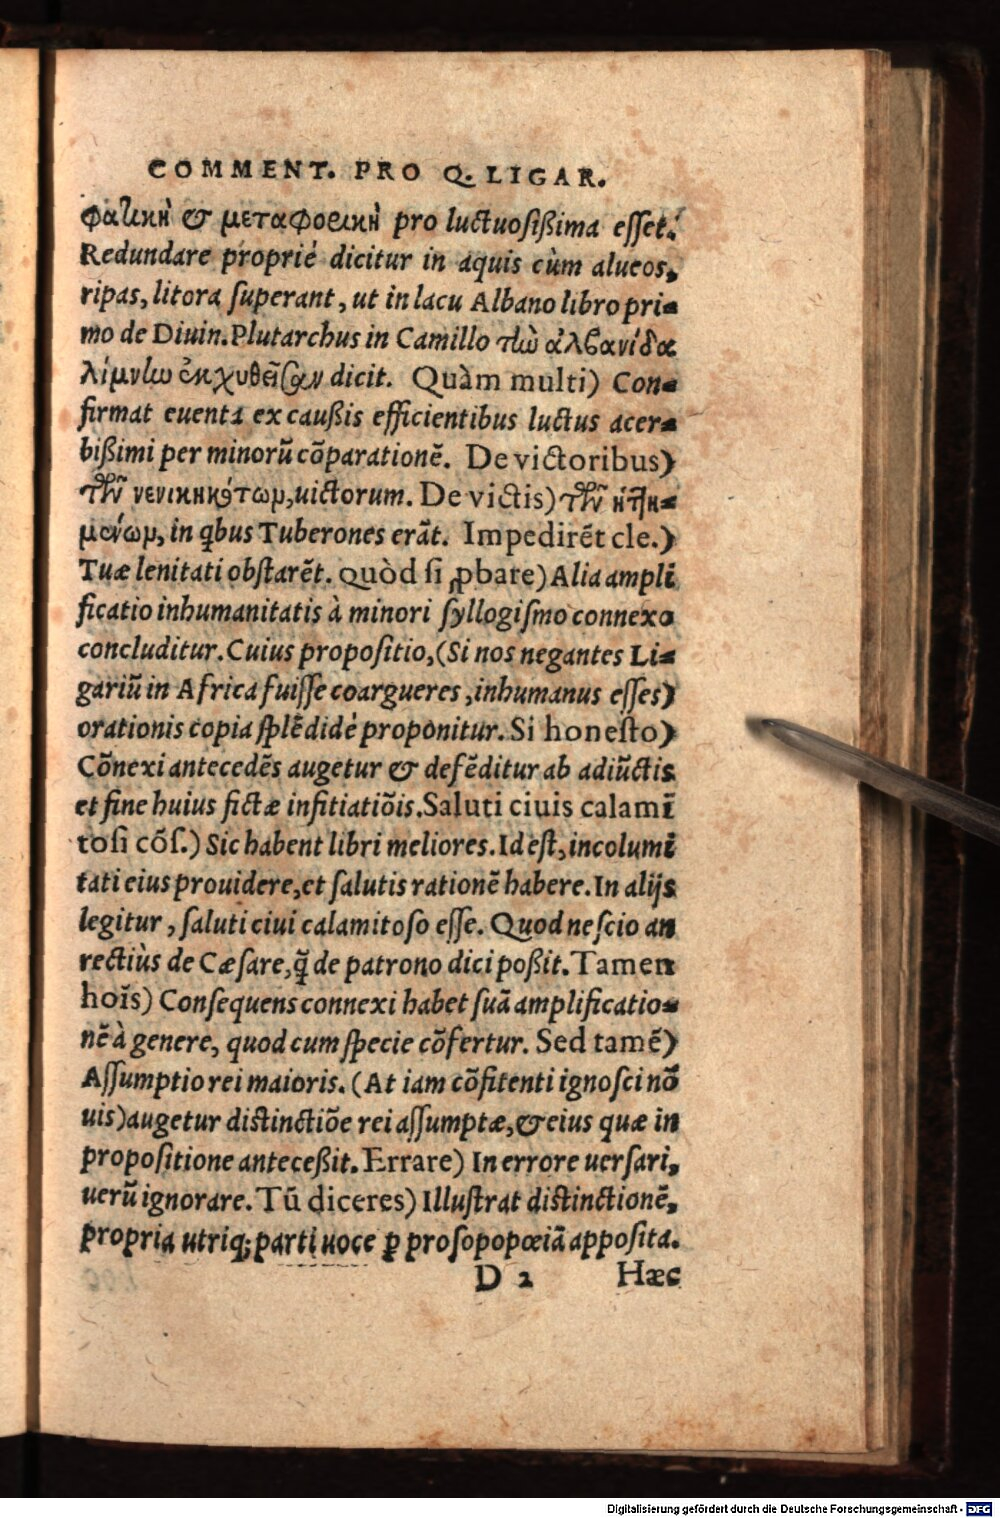 COMMENT. PRO Q. LIGAR.
φατικὴ & μεταφορικὴ pro luctuosißima esset.
Redundare propriè dicitur in aquis cùm alueos,
ripas, litora superant, ut in lacu Albano libro pri-
mo de Diuin. Plutarchus in Camillo τὼ ἀλβανίδα
λίμνω ἐκχυθεῖσαν dicit. Quàm multi) Con-
firmat euenta ex caußis efficientibus luctus acer-
bißimi per minorũ cõparationẽ. De victoribus)
τῶν νενικηκότων, uictorum. De victis) τῶν ἡττη-
μένων, in qbus Tuberones erãt. Impedirẽt cle.)
Tuæ lenitati obstarẽt. Quòd si ꝓbare) Alia ampli
ficatio inhumanitatis à minori syllogismo connexo
concluditur. Cuius propositio, (Si nos negantes Li-
gariũ in Africa fuisse coargueres, inhumanus esses)
orationis copia splẽdidè proponitur. Si honesto)
Cõnexi antecedẽs augetur & defẽditur ab adiũctis
et fine huius fictæ infitiatiõis. Saluti ciuis calamĩ
tosi cõs.) Sic habent libri meliores. Id est, incolumi
tati eius prouidere, et salutis rationẽ habere. In alijs
legitur, saluti ciui calamitoso esse. Quod nescio an
rectiùs de Cæsare, q̃ de patrono dici poßit. Tamen
hoĩs) Consequens connexi habet suã amplificatio-
nẽ à genere, quod cum specie cõfertur. Sed tamẽ)
Assumptio rei maioris. (At iam cõfitenti ignosci nõ
uis) augetur distinctiõe rei assumptæ, & eius quæ in
propositione anteceßit. Errare) In errore uersari,
uerũ ignorare. Tũ diceres) Illustrat distinctionẽ,
propria utriq; parti uoce ꝑ prosopopœiã apposita.
D 2 Hæc
Digitalisierung gefördert durch die Deutsche Forschungsgemeinschaft - DFG